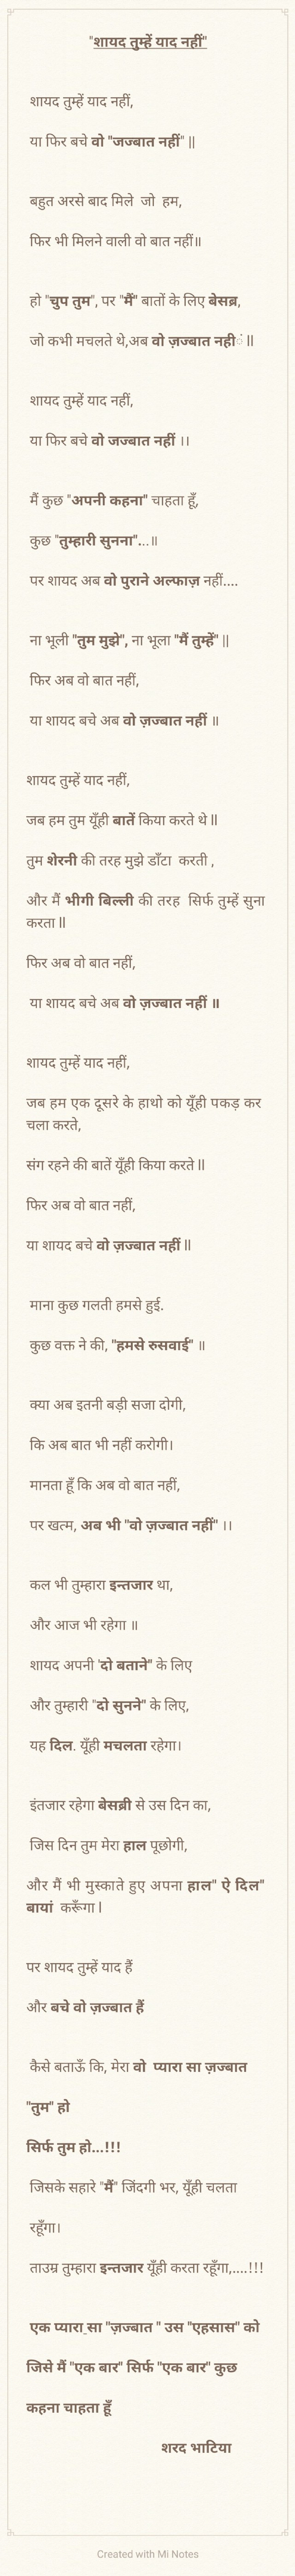 "शायद तुम्हें याद नहीं"
शायद तुम्हें याद नहीं,
या फिर बचे वो "जज्बात नहीं" ||
बहुत अरसे बाद मिले जो हम,
फिर भी मिलने वाली वो बात नहीं॥
हो "चुप तुम", पर "मैं" बातों के लिए बेसब्र,
जो कभी मचलते थे,अब वो ज़ज्बात नहीं ll
शायद तुम्हें याद नहीं,
या फिर बचे वो जज्बात नहीं ।।
मैं कुछ "अपनी कहना" चाहता हूँ,
कुछ "तुम्हारी सुनना"...॥
पर शायद अब वो पुराने अल्फाज़ नहीं....
ना भूली "तुम मुझे", ना भूला "मैं तुम्हें" ||
फिर अब वो बात नहीं,
या शायद बचे अब वो ज़ज्बात नहीं ॥
शायद तुम्हें याद नहीं,
जब हम तुम यूँही बातें किया करते थे ll
तुम शेरनी की तरह मुझे डाँटा करती ,
और मैं भीगी बिल्ली की तरह सिर्फ तुम्हें सुना
करता ll
फिर अब वो बात नहीं,
या शायद बचे अब वो ज़ज्बात नहीं ॥
शायद तुम्हें याद नहीं,
जब हम एक दूसरे के हाथो को यूँही पकड़ कर
चला करते,
संग रहने की बातें यूँही किया करते ll
फिर अब वो बात नहीं,
या शायद बचे वो ज़ज्बात नहीं ll
माना कुछ गलती हमसे हुई.
कुछ वक्त ने की, "हमसे रुसवाई" ॥
क्या अब इतनी बड़ी सजा दोगी,
कि अब बात भी नहीं करोगी।
मानता हूँ कि अब वो बात नहीं,
पर खत्म, अब भी "वो ज़ज्बात नहीं" ।।
कल भी तुम्हारा इन्तजार था,
और आज भी रहेगा ॥
शायद अपनी 'दो बताने" के लिए
और तुम्हारी "दो सुनने" के लिए,
यह दिल. यूँही मचलता रहेगा।
इंतजार रहेगा बेसब्री से उस दिन का,
जिस दिन तुम मेरा हाल पूछोगी,
और मैं भी मुस्काते हुए अपना हाल" ऐ दिल"
बायां करूँगा l
पर शायद तुम्हें याद हैं
और बचे वो ज़ज्बात हैं
कैसे बताऊँ कि, मेरा वो प्यारा सा ज़ज्बात
"तुम" हो
सिर्फ तुम हो...!!!
जिसके सहारे "मैं" जिंदगी भर, यूँही चलता
रहूँगा।
ताउम्र तुम्हारा इन्तजार यूँही करता रहूँगा,....!!!
एक प्यारा सा "ज़ज्बात " उस "एहसास" को
जिसे मैं "एक बार" सिर्फ "एक बार" कुछ
कहना चाहता हूँ
शरद भाटिया
Created with Mi Notes